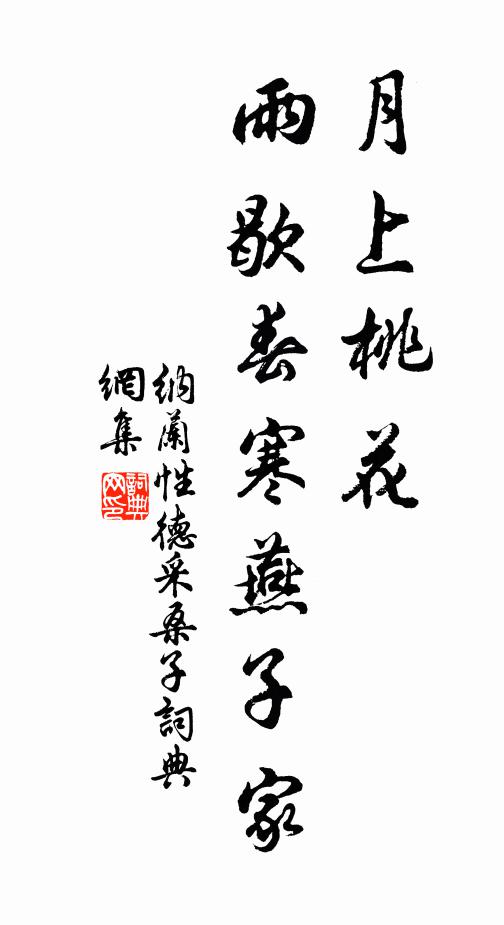 月上桃花
雨歇春寒燕子家
納蘭性德采桑子詞典
網集
詞典
网印